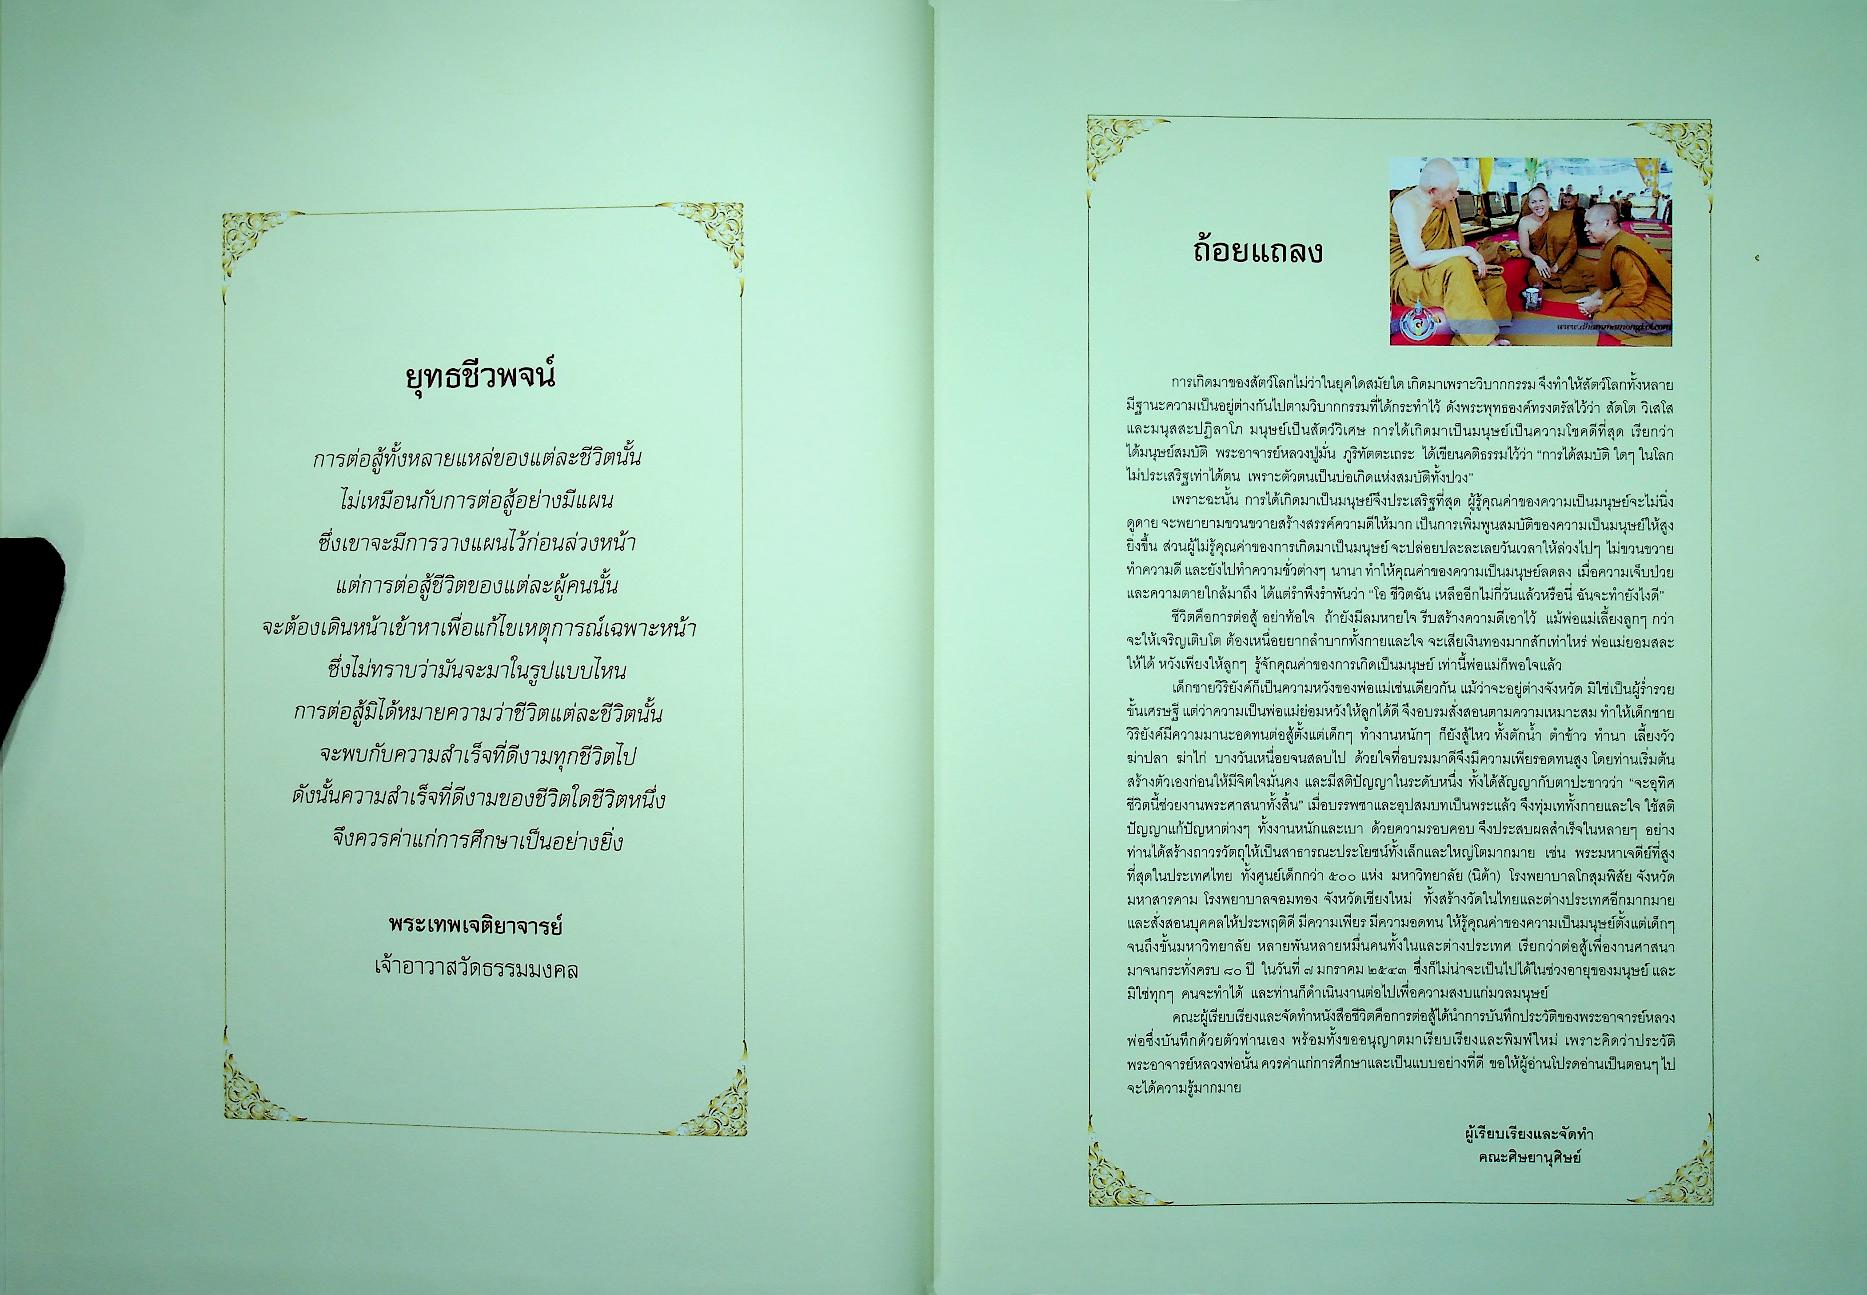 ยุทธชีวพจน์
การต่อสู้ทั้งหลายแหล่ของแต่ละชีวิตนั้น
ไม่เหมือนกับการต่อสู้อย่างมีแผน
ซึ่งเขาจะมีการวางแผนไว้ก่อนล่วงหน้า
แต่การต่อสู้ชีวิตของแต่ละผู้คนนั้น
จะต้องเดินหน้าเข้าหาเพื่อแก้ไขเหตุการณ์เฉพาะหน้า
ซึ่งไม่ทราบว่ามันจะมาในรูปแบบไหน
การต่อสู้มิได้หมายความว่าชีวิตแต่ละชีวิตนั้น
จะพบกับความสำเร็จที่ดีงามทุกชีวิตไป
ดังนั้นความสำเร็จที่ดีงามของชีวิตใดชีวิตหนึ่ง
จึงควรค่าแก่การศึกษาเป็นอย่างยิ่ง
พระเทพเจติยาจารย์
เจ้าอาวาสวัดธรรมมงคล
ถ้อยแถลง
www.dhammamongkol.com
การเกิดมาของสัตว์โลกไม่ว่าในยุคใดสมัยใด เกิดมาเพราะวิบากกรรม จึงทำให้สัตว์โลกทั้งหลาย
มีฐานะความเป็นอยู่ต่างกันไปตามวิบากกรรมที่ได้กระทำไว้ ดังพระพุทธองค์ทรงตรัสไว้ว่า สัตโต วิเสโส
และมนุสสะปฏิลาโภ มนุษย์เป็นสัตว์วิเศษ การได้เกิดมาเป็นมนุษย์เป็นความโชคดีที่สุด เรียกว่า
ได้มนุษย์สมบัติ พระอาจารย์หลวงปู่มั่น ภูริทัตตะเถระ ได้เขียนคติธรรมไว้ว่า “การได้สมบัติ ใดๆ ในโลก
ไม่ประเสริฐเท่าได้ตน เพราะตัวตนเป็นบ่อเกิดแห่งสมบัติทั้งปวง”
เพราะฉะนั้น การได้เกิดมาเป็นมนุษย์จึงประเสริฐที่สุด ผู้รู้คุณค่าของความเป็นมนุษย์จะไม่นิ่ง
ดูดาย จะพยายามขวนขวายสร้างสรรค์ความดีให้มาก เป็นการเพิ่มพูนสมบัติของความเป็นมนุษย์ให้สูง
ยิ่งขึ้น ส่วนผู้ไม่รู้คุณค่าของการเกิดมาเป็นมนุษย์ จะปล่อยปละละเลยวันเวลาให้ล่วงไปๆ ไม่ขวนขวาย
ทำความดี และยังไปทำความชั่วต่างๆ นานา ทำให้คุณค่าของความเป็นมนุษย์ลดลง เมื่อความเจ็บป่วย
และความตายใกล้มาถึง ได้แต่รำพึงรำพันว่า “โอ ชีวิตฉัน เหลืออีกไม่กี่วันแล้วหรือนี่ ฉันจะทำยังไงดี”
ชีวิตคือการต่อสู้ อย่าท้อใจ ถ้ายังมีลมหายใจ รีบสร้างความดีเอาไว้ แม้พ่อแม่เลี้ยงลูกๆ กว่า
จะให้เจริญเติบโต ต้องเหนื่อยยากลำบากทั้งกายและใจ จะเสียเงินทองมากสักเท่าไหร่ พ่อแม่ยอมสละ
ให้ได้ หวังเพียงให้ลูกๆ รู้จักคุณค่าของการเกิดเป็นมนุษย์ เท่านี้พ่อแม่ก็พอใจแล้ว
เด็กชายวิริยังค์ก็เป็นความหวังของพ่อแม่เช่นเดียวกัน แม้ว่าจะอยู่ต่างจังหวัด มิใช่เป็นผู้ร่ำรวย
ขั้นเศรษฐี แต่ว่าความเป็นพ่อแม่ย่อมหวังให้ลูกได้ดี จึงอบรมสั่งสอนตามความเหมาะสม ทำให้เด็กชาย
วิริยังค์มีความมานะอดทนต่อสู้ตั้งแต่เด็กๆ ทำงานหนักๆ ก็ยังสู้ไหว ทั้งตักน้ำ ตำข้าว ทำนา เลี้ยงวัว
ฆ่าปลา ฆ่าไก่ บางวันเหนื่อยจนสลบไป ด้วยใจที่อบรมมาดีจึงมีความเพียรอดทนสูง โดยท่านเริ่มต้น
สร้างตัวเองก่อนให้มีจิตใจมั่นคง และมีสติปัญญาในระดับหนึ่ง ทั้งได้สัญญากับตาปะขาวว่า “จะอุทิศ
ชีวิตนี้ช่วยงานพระศาสนาทั้งสิ้น” เมื่อบรรพชาและอุปสมบทเป็นพระแล้ว จึงทุ่มเททั้งกายและใจ ใช้สติ
ปัญญาแก้ปัญหาต่างๆ ทั้งงานหนักและเบา ด้วยความรอบคอบ จึงประสบผลสำเร็จในหลายๆ อย่าง
ท่านได้สร้างถาวรวัตถุให้เป็นสาธารณะประโยชน์ทั้งเล็กและใหญ่โตมากมาย เช่น พระมหาเจดีย์ที่สูง
ที่สุดในประเทศไทย ทั้งศูนย์เด็กกว่า ๕๐๐ แห่ง มหาวิทยาลัย (นิด้า) โรงพยาบาลโกสุมพิสัย จังหวัด
มหาสารคาม โรงพยาบาลจอมทอง จังหวัดเชียงใหม่ ทั้งสร้างวัดในไทยและต่างประเทศอีกมากมาย
และสั่งสอนบุคคลให้ประพฤติดี มีความเพียร มีความอดทน ให้รู้คุณค่าของความเป็นมนุษย์ตั้งแต่เด็กๆ
จนถึงขั้นมหาวิทยาลัย หลายพันหลายหมื่นคนทั้งในและต่างประเทศ เรียกว่าต่อสู้เพื่องานศาสนา
มาจนกระทั่งครบ ๘๐ ปี ในวันที่ ๗ มกราคม ๒๕๔๓ ซึ่งก็ไม่น่าจะเป็นไปได้ในช่วงอายุของมนุษย์ และ
มิใช่ทุกๆ คนจะทำได้ และท่านก็ดำเนินงานต่อไปเพื่อความสงบแก่มวลมนุษย์
คณะผู้เรียบเรียงและจัดทำหนังสือชีวิตคือการต่อสู้ได้นำการบันทึกประวัติของพระอาจารย์หลวง
พ่อซึ่งบันทึกด้วยตัวท่านเอง พร้อมทั้งขออนุญาตมาเรียบเรียงและพิมพ์ใหม่ เพราะคิดว่าประวัติ
พระอาจารย์หลวงพ่อนั้น ควรค่าแก่การศึกษาและเป็นแบบอย่างที่ดี ขอให้ผู้อ่านโปรดอ่านเป็นตอนๆ ไป
จะได้ความรู้มากมาย
ผู้เรียบเรียงและจัดทำ
คณะศิษยานุศิษย์